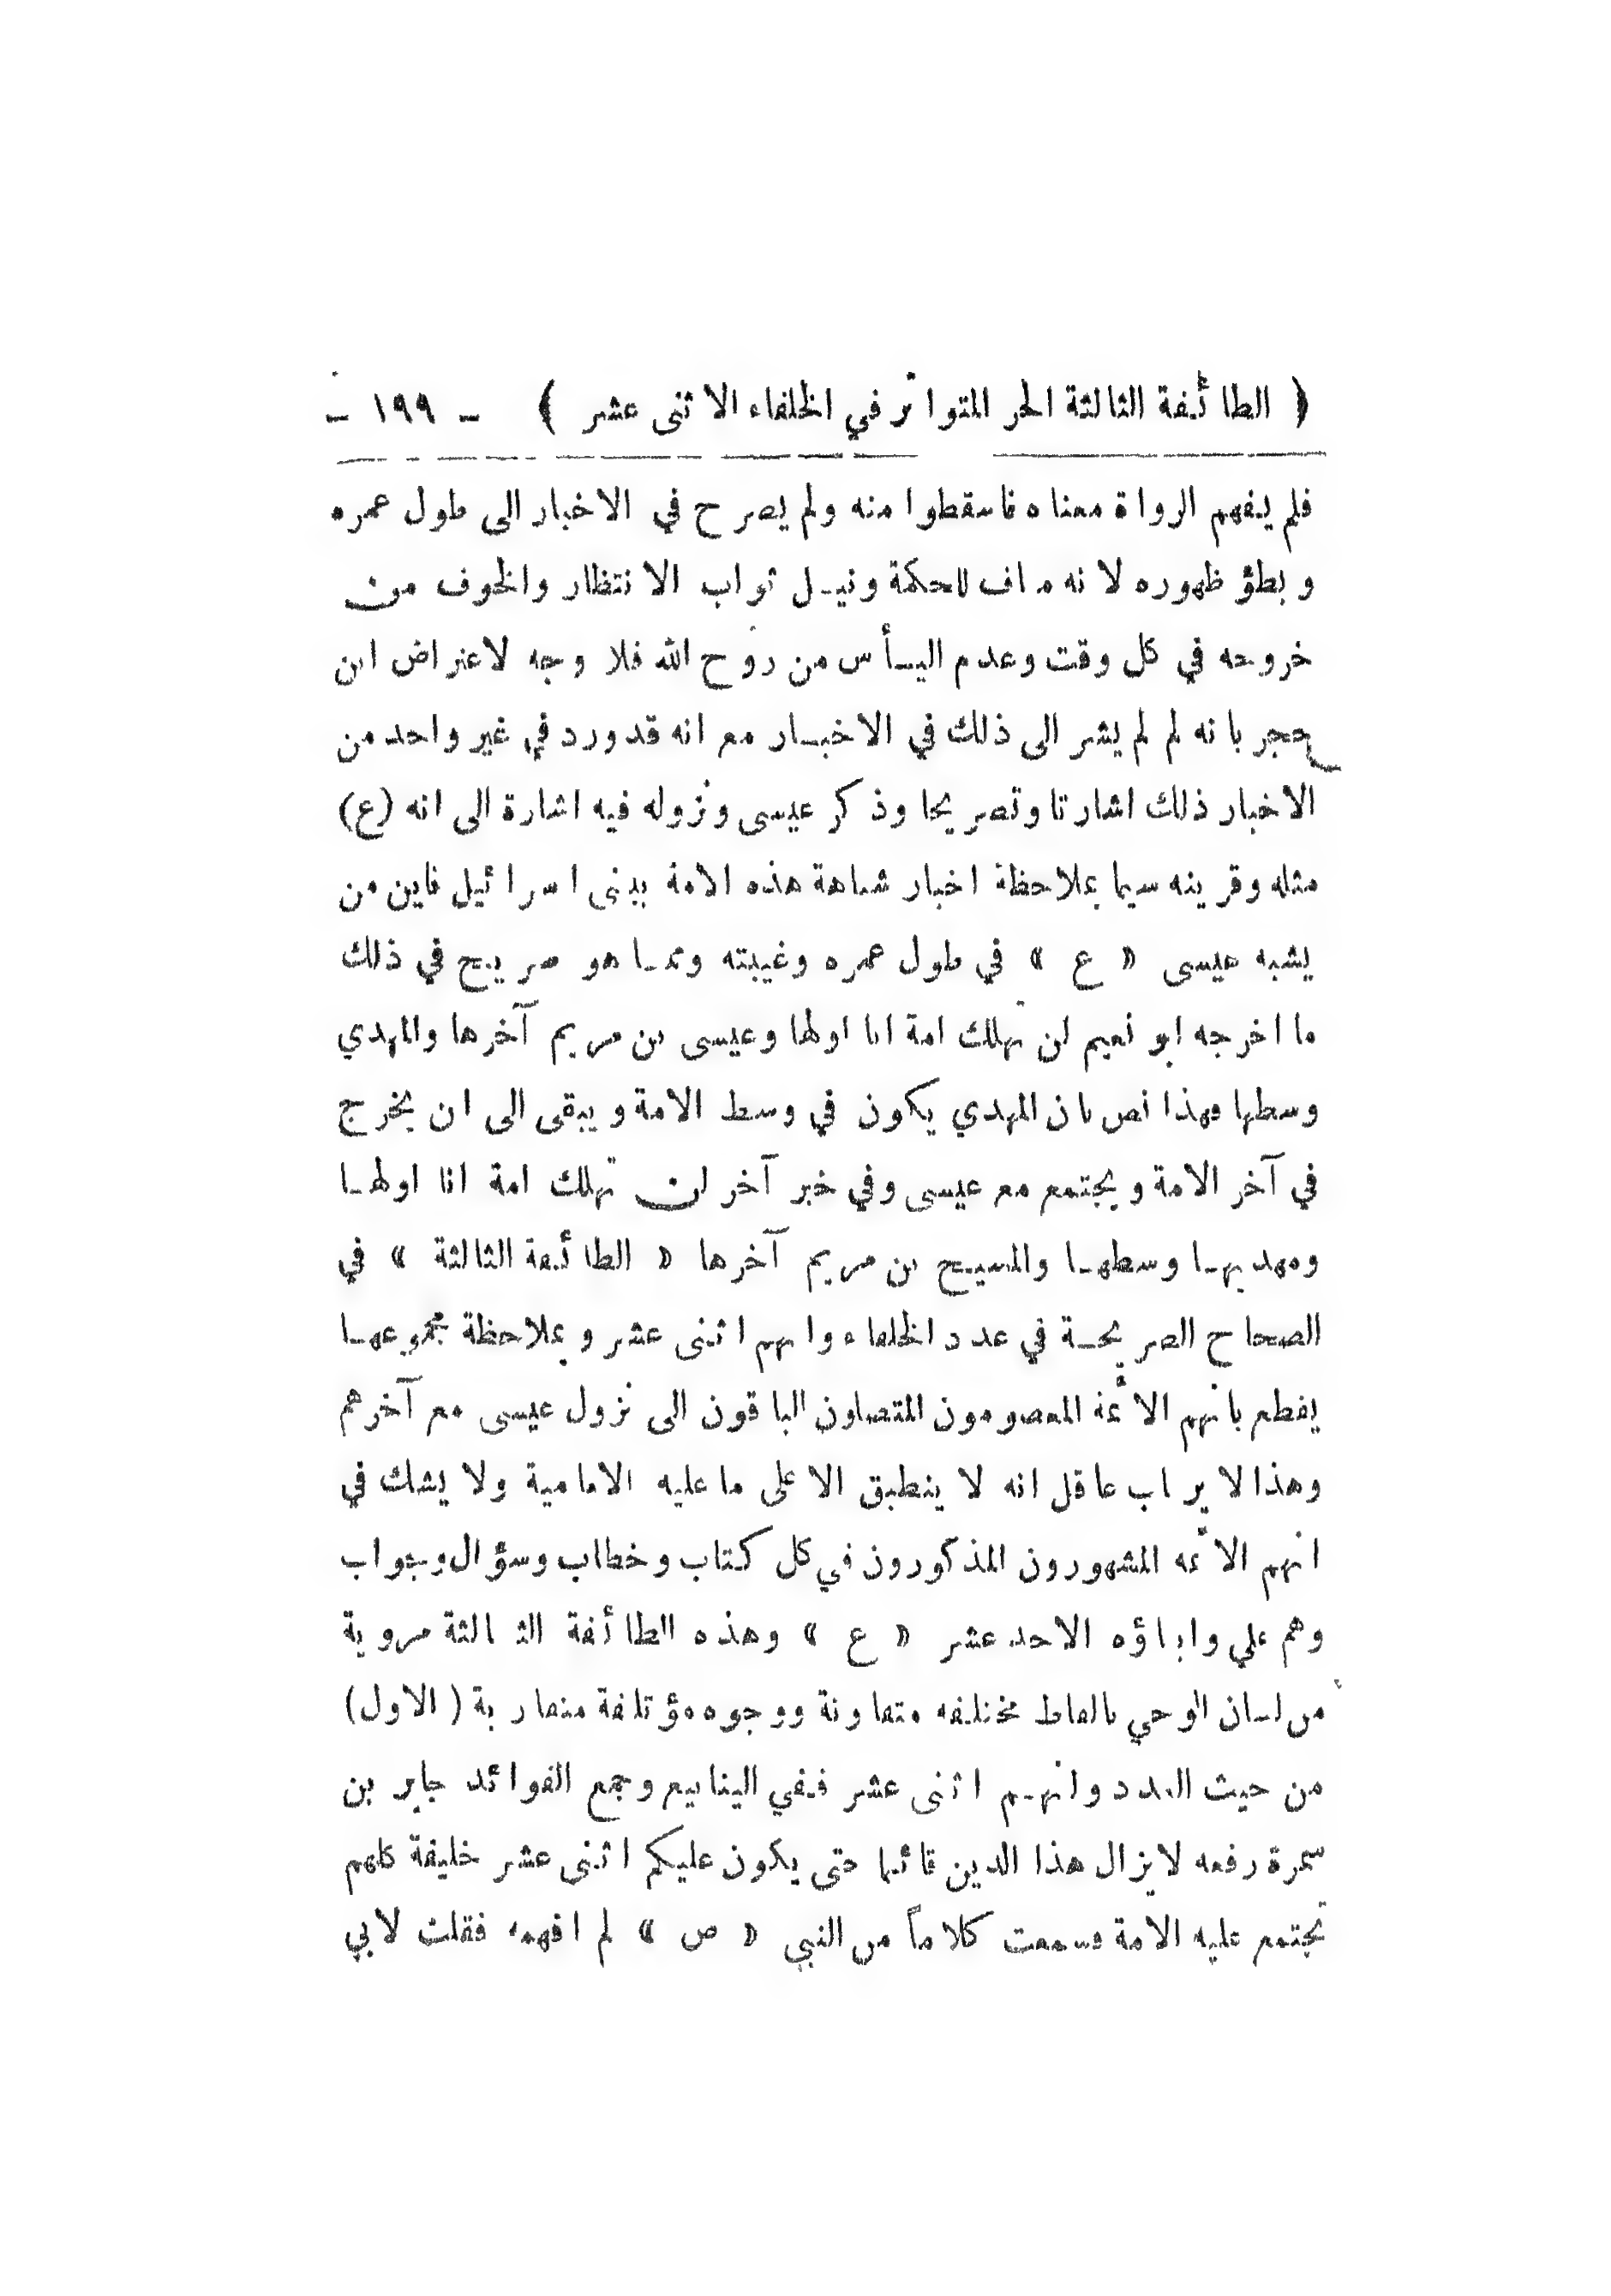 ﴿ الطائفة الثالثة الخبر المتواتر في الخلفاء الاثنى عشر ﴾ - ١٩٩ -
فلم يفهم الرواة معناه فاسقطوا منه ولم يصرح في الاخبار الى طول عمره
وبطؤ ظهوره لانه مناف للحكمة ونيل ثواب الانتظار والخوف من
خروجه في كل وقت وعدم اليأس من روح الله فلا وجه لاعتراض ابن
حجر بانه لم لم يشر الى ذلك في الاخبار مع انه قد ورد في غير واحد من
الاخبار ذلك اشارتا وتصريحا وذكر عيسى ونزوله فيه اشارة الى انه (ع)
مثله وقرينه سيما بملاحظة اخبار شباهة هذه الامة ببنى اسرائيل فاين من
يشبه عيسى « ع » في طول عمره وغيبته ومما هو صريح في ذلك
ما اخرجه ابو نعيم لن تهلك امة انا اولها وعيسى بن مريم آخرها والمهدي
وسطها فهذا نص بان المهدي يكون في وسط الامة ويبقى الى ان يخرج
في آخر الامة ويجتمع مع عيسى وفي خبر آخر لن تهلك امة انا اولها
ومهديها وسطها والمسيح بن مريم آخرها « الطائفة الثالثة » في
الصحاح الصريحة في عدد الخلفاء وانهم اثنى عشر وبملاحظة مجموعها
يقطع بانهم الائمة المعصومون المتصلون الباقون الى نزول عيسى مع آخرهم
وهذا لا يراب عاقل انه لا ينطبق الا على ما عليه الامامية ولا يشك في
انهم الائمه المشهورون المذكورون في كل كتاب وخطاب وسؤال وجواب
وهم علي وابناؤه الاحد عشر « ع » وهذه الطائفة الثالثة مروية
من لسان الوحي بالفاظ مختلفه متفاوتة ووجوه مؤتلفة متقاربة (الاول)
من حيث العدد وانهم اثنى عشر ففي الينابيع وجمع الفوائد جابر بن
سمرة رفعه لا يزال هذا الدين قائما حتى يكون عليكم اثنى عشر خليفة كلهم
تجتمع عليه الامة فسمعت كلاماً من النبي « ص » لم افهمه فقلت لابي